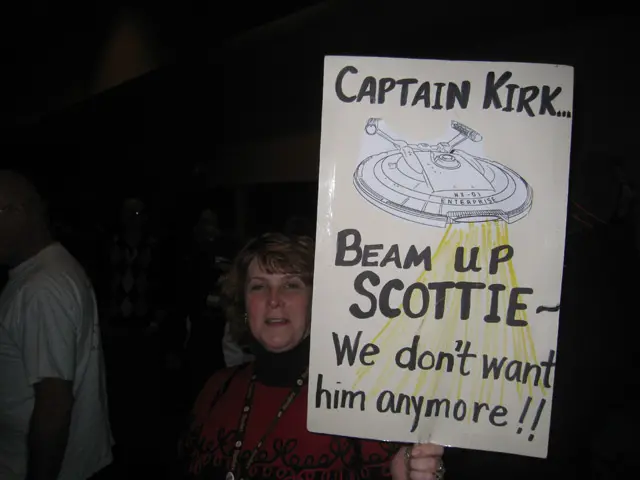 CAPTAIN KIRK...
NX-01
ENTERPRISE
BEAM UP
SCOTTIE~
We don't want
him anymore!!